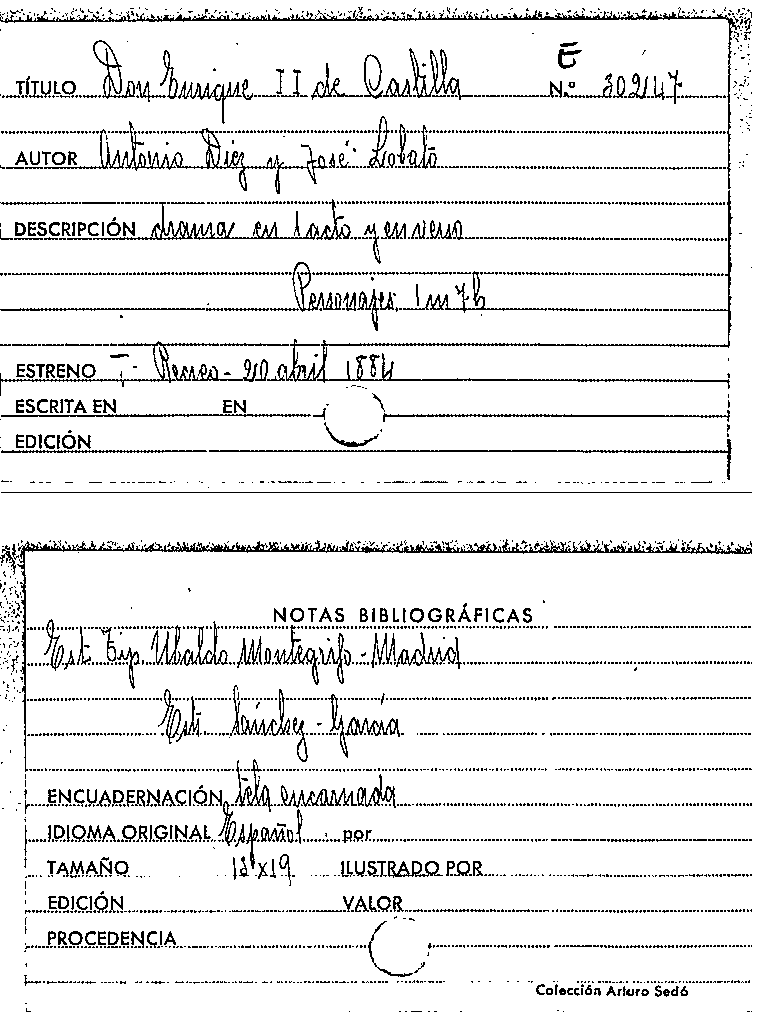 E
TÍTULO Don Enrique II de Castilla N.º 302147
AUTOR Antonio Díez y José Lobato
DESCRIPCIÓN drama en 1 acto y en verso
Personajes, 1 m 7 h
ESTRENO T- Recreo - 20 abril 1884
ESCRITA EN EN
EDICIÓN
NOTAS BIBLIOGRÁFICAS
Est. Tip. Ubaldo Montegrifo - Madrid
Est. Sánchez - García
ENCUADERNACIÓN tela encarnada
IDIOMA ORIGINAL Español por
TAMAÑO x19 ILUSTRADO POR
EDICIÓN VALOR
PROCEDENCIA
Colección Arturo Sedó